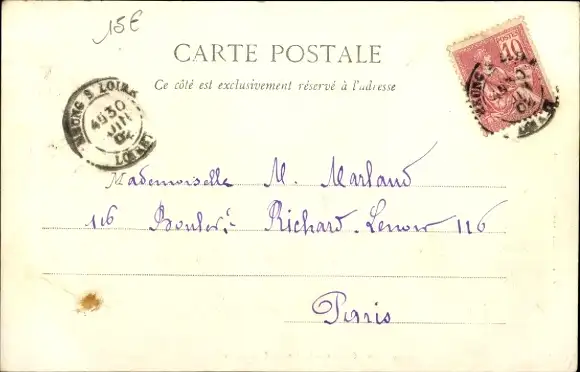 15€
CARTE POSTALE
Ce côté est exclusivement réservé à l'adresse
POSTES 10
MEUNG S LOIRE
4E 30
JUIN
02
LOIRET
Mademoiselle M. Marland
116 Boulevd Richard-Lenoir 116
Paris